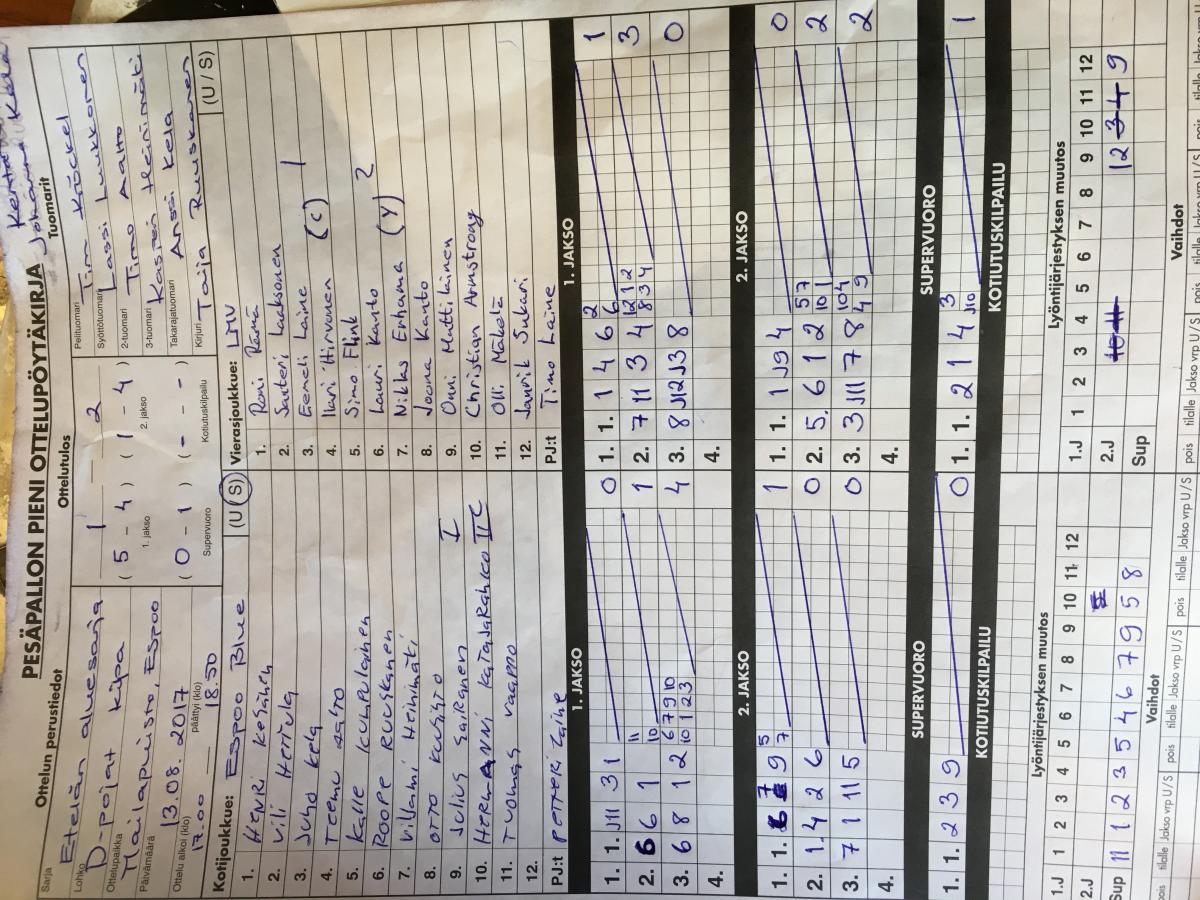 PESÄPALLON PIENI OTTELUPÖYTÄKIRJA
Ottelun perustiedot
Sarja Etelän aluesarja
Lohko D-pojat kilpa
Ottelupaikka Mailapuisto, Espoo
Päivämäärä 13.08.2017
Ottelu alkoi (klo) 17.00 päättyi (klo) 18.50
Ottelutulos
1 — 2
( 5 - 4 ) ( 1 - 4 )
1. jakso 2. jakso
( 0 - 1 ) ( - - - )
Supervuoro Kotiutuskilpailu
Tuomarit
Johanna Kela
Pelituomari Timi Kröckel
Syöttötuomari Lassi Luukkonen
2-tuomari Timo Aalto
3-tuomari Kasperi Heinimäki
Takarajatuomari Anssi Kela
Kirjuri Tarja Ruuskanen
Kotijoukkue: Espoo Blue (U / S)
1. HENRI
2. Vili Herttula
3. Juho kela
4. Teemu aalto
5. Kalle kumpulainen
6. Roope Ruuskanen
7. Villami Heinimäki
8. Otto
9. Julius I
10. Hermanni II C
11. Tuomas vaarmo
12.
PJ:t Petteri Laine
Vierasjoukkue: LMV (U / S)
1. Roni Rämä
2. Santeri Laaksonen
3. Eemeli Laine (C) 1
4. Ilari Hirvonen
5. Simo Flink
6. Lauri Kanto (Y) 2
7. Niklas Enhama
8. Joona Kanto
9. Onni Muttilainen
10. Christian Armstrong
11. Olli Mäkelä
12. Janrik Sukari
PJ:t Timo Laine
1. JAKSO
1. 1. J11 3 1 0
2. 6 6 1 11 10 1
3. 6 8 1 2 6 7 9 10 10 1 2 3 4
4.
1. JAKSO
1. 1. 1 4 6 2 6 1
2. 7 11 3 4 12 1 2 8 3 4 3
3. 8 J12 J3 8 0
4.
2. JAKSO
1. 1. 7 9 5 7 1
2. 1. 4 2 6 0
3. 7 1 11 5 0
4.
2. JAKSO
1. 1. 1 J9 4 0
2. 5. 6 1 2 5 7 10 1 2
3. 3 J11 7 8 10 4 4 9 2
4.
SUPERVUORO
1. 1. 2 3 9 0
SUPERVUORO
1. 1. 2 1 4 3 J10 1
KOTIUTUSKILPAILU
KOTIUTUSKILPAILU
Lyöntijärjestyksen muutos
1 2 3 4 5 6 7 8 9 10 11 12
1.J
2.J
Sup 11 1 2 3 5 4 6 7 9 5 8
Lyöntijärjestyksen muutos
1 2 3 4 5 6 7 8 9 10 11 12
1.J
2.J 10 11 12 3 4 9
Sup
Vaihdot
pois tilalle Jakso vrp U / S pois tilalle Jakso vrp U / S
Vaihdot
pois tilalle Jakso vrp U / S pois tilalle Jakso vrp U / S